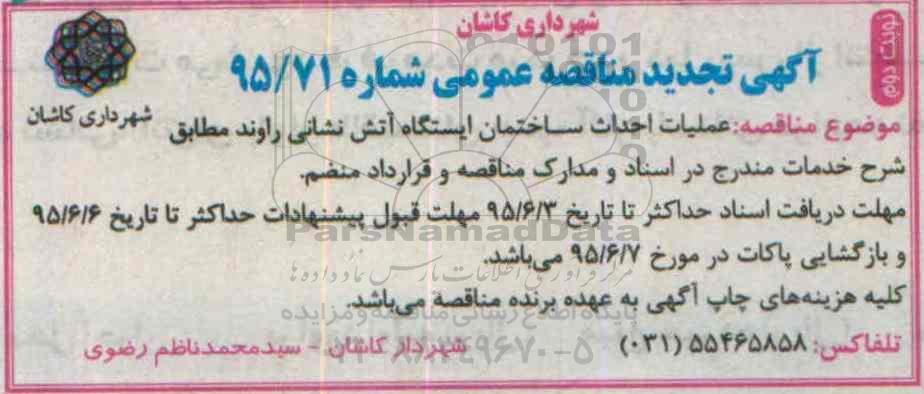 شهرداری کاشان
نوبت دوم
آگهی تجدید مناقصه عمومی شماره ۹۵/۷۱
شهرداری کاشان
موضوع مناقصه: عملیات احداث ساختمان ایستگاه آتش نشانی راوند مطابق
شرح خدمات مندرج در اسناد و مدارک مناقصه و قرارداد منضم.
مهلت دریافت اسناد حداکثر تا تاریخ ۹۵/۶/۳ مهلت قبول پیشنهادات حداکثر تا تاریخ ۹۵/۶/۶
و بازگشایی پاکات در مورخ ۹۵/۶/۷ می‌باشد.
ParsNamadData
مرکز فرآوری اطلاعات پارس نماد داده ها
کلیه هزینه‌های چاپ آگهی به عهده برنده مناقصه می‌باشد.
پایگاه اطلاع رسانی مناقصه و مزایده
تلفاکس: ۵۵۴۶۵۸۵۸ (۰۳۱)
شهردار کاشان - سیدمحمدناظم رضوی